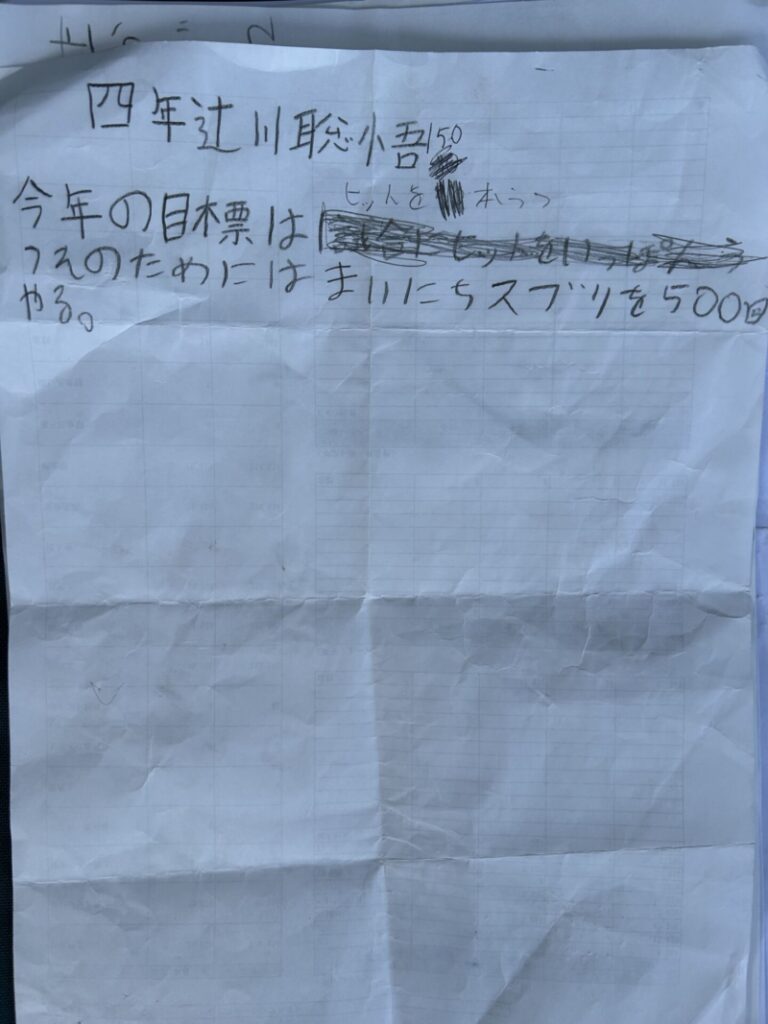 四年辻川聡小吾
150
ヒットを本うつ
今年の目標は
つそのためにはまいにちスブリを500回
やる。